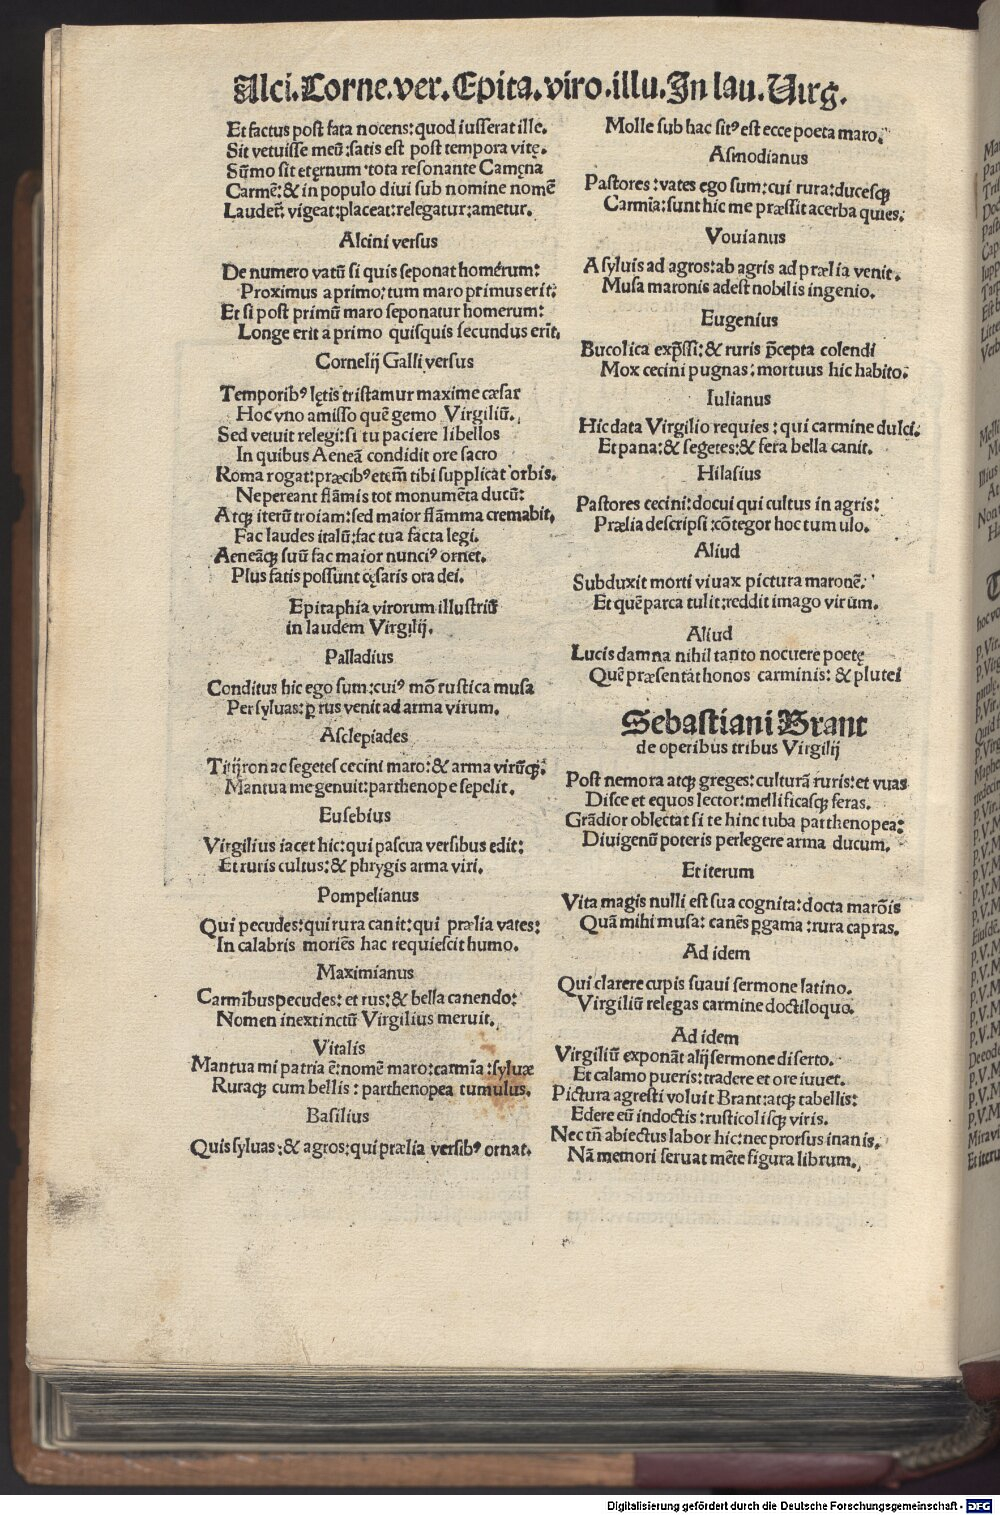 Alci. Corne. ver. Epita. viro. illu. In lau. Virg.
Et factus post fata nocens: quod iusserat ille.
Sit vetuisse meũ: satis est post tempora vitę.
Sũmo sit etęrnum tota resonante Camęna
Carmẽ: & in populo diui sub nomine nomẽ
Laudet̃: vigeat: placeat: relegatur: ametur.
Alcini versus
De numero vatũ si quis seponat homérum:
Proximus a primo: tum maro primus erit:
Et si post primũ maro seponatur homerum:
Longe erit a primo quisquis secundus erit.
Cornelij Galli versus
Temporibꝰ lętis tristamur maxime cæsar
Hoc vno amisso quẽ gemo Virgiliũ.
Sed vetuit relegi: si tu paciere libellos
In quibus Aeneã condidit ore sacro
Roma rogat: præcibꝰ etem̃ tibi supplicat orbis.
Ne pereant flãmis tot monumẽta ducũ:
Atqꝫ iterũ troiam: sed maior flãmma cremabit.
Fac laudes italũ: fac tua facta legi.
Aeneãqꝫ suũ fac maior nunciꝰ ornet.
Plus fatis possunt cęsaris ora dei.
Epitaphia virorum illustriũ
in laudem Virgilij.
Palladius
Conditus hic ego sum: cuiꝰ mõ rustica musa
Per syluas: ꝑ rus venit ad arma virum.
Asclepiades
Titijron ac segetes cecini maro: & arma virũqꝫ:
Mantua me genuit: parthenope sepelit.
Eusebius
Virgilius iacet hic: qui pascua versibus edit:
Et ruris cultus: & phrygis arma viri.
Pompelianus
Qui pecudes: qui rura canit: qui prælia vates:
In calabris moriẽs hac requiescit humo.
Maximianus
Carmĩbus pecudes: et rus: & bella canendo:
Nomen inextinctũ Virgilius meruit.
Vitalis
Mantua mi patria ẽ: nomẽ maro: carmĩa: syluæ
Ruraqꝫ cum bellis: parthenopea tumulus.
Basilius
Quis syluas: & agros: qui prælia versibꝰ ornat.
Molle sub hac sitꝰ est ecce poeta maro.
Asmodianus
Pastores: vates ego sum: cui rura: ducesqꝫ
Carmĩa: sunt hic me præssit acerba quies:
Vouianus
A syluis ad agros: ab agris ad prælia venit.
Musa maronis adest nobilis ingenio.
Eugenius
Bucolica exp̃ssi: & ruris p̃cepta colendi
Mox cecini pugnas: mortuus hic habito.
Iulianus
Hic data Virgilio requies: qui carmine dulci.
Et pana: & segetes: & fera bella canit.
Hilasius
Pastores cecini: docui qui cultus in agris:
Prælia descripsi: cõtegor hoc tumulo.
Aliud
Subduxit morti viuax pictura maronẽ:
Et quẽ parca tulit: reddit imago virum.
Aliud
Lucis damna nihil tanto nocuere poetę
Quẽ præsentãt honos carminis: & plutei
Sebastiani Brant
de operibus tribus Virgilij
Post nemora atqꝫ greges: culturã ruris: et vuas
Disce et equos lector: mellificasqꝫ feras.
Grãdior oblectat si te hinc tuba parthenopea:
Diuigenũ poteris perlegere arma ducum.
Et iterum
Vita magis nulli est sua cognita: docta marõis
Quã mihi musa: canẽs ꝑgama: rura capras.
Ad idem
Qui clarere cupis suaui sermone latino.
Virgiliũ relegas carmine doctiloquo.
Ad idem
Virgiliũ exponãt alij sermone diserto.
Et calamo pueris: tradere et ore iuuet.
Pictura agresti voluit Brant: atqꝫ tabellis:
Edere eũ indoctis: rusticolisqꝫ viris.
Nec tñ abiectus labor hic: nec prorsus inanis.
Nã memori seruat mẽte figura librum.
Digitalisierung gefördert durch die Deutsche Forschungsgemeinschaft - DFG